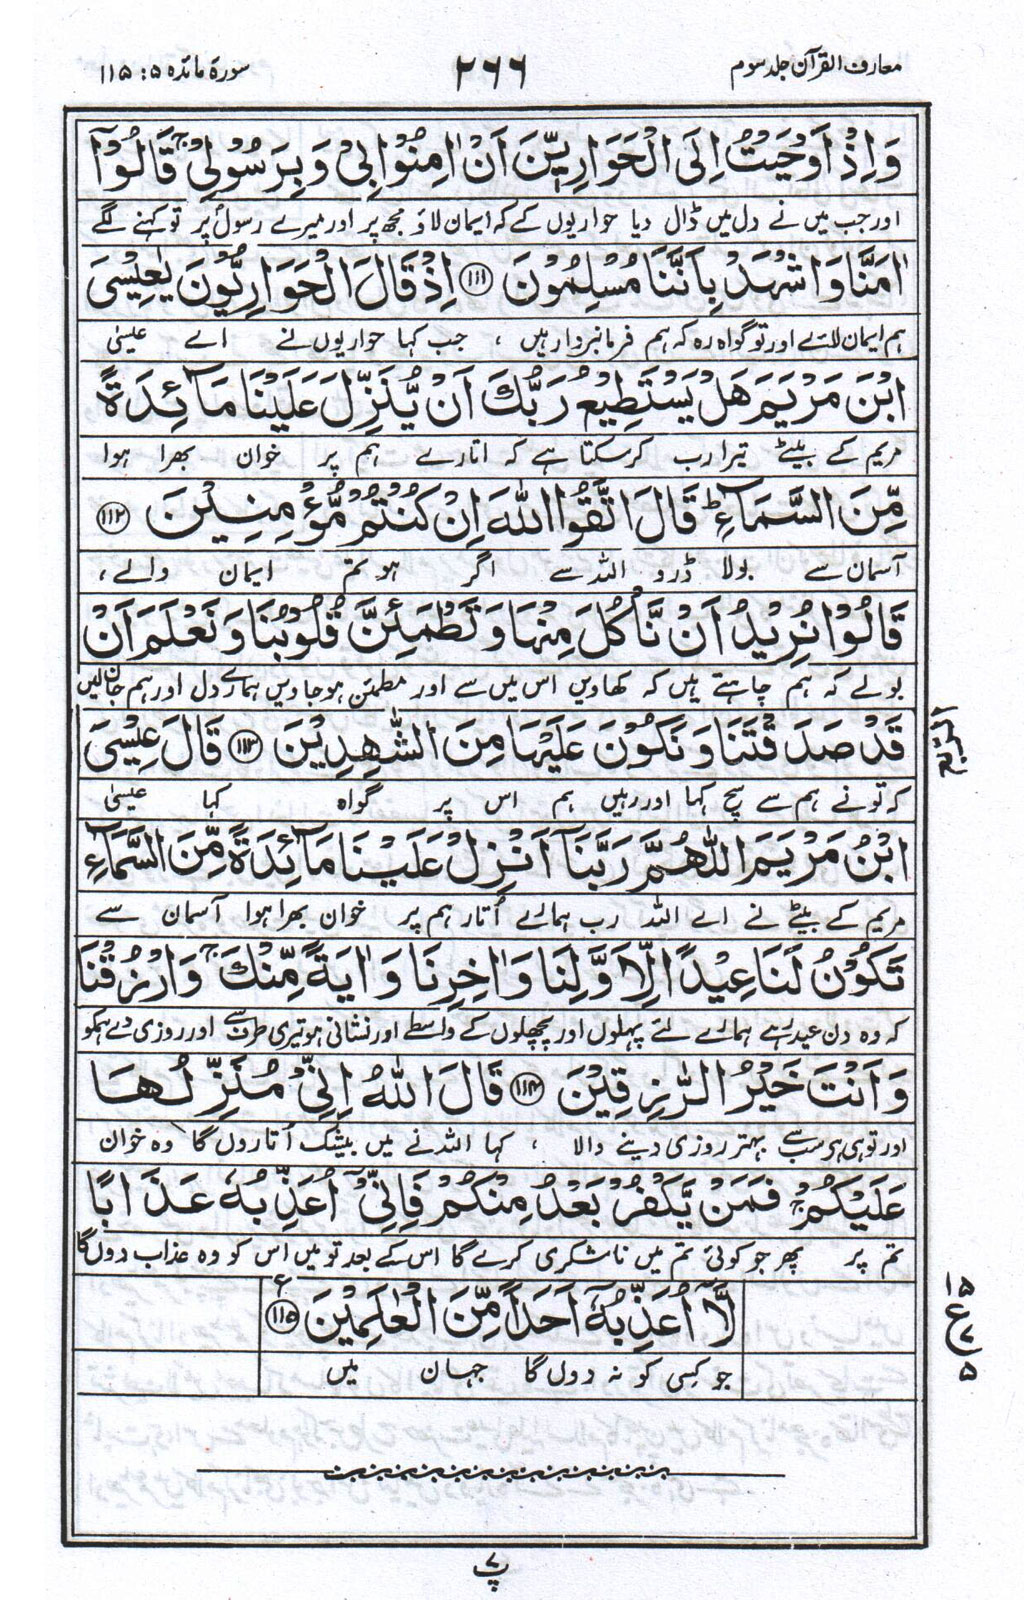 معارف القرآن جلد سوم
۲۶۶
سورۃ مائدہ ۵: ۱۱۵
وَاِذْ اَوْحَيْتُ اِلَى الْحَوَارِيّٖنَ اَنْ اٰمِنُوْا بِيْ وَبِرَسُوْلِيْ ۚ قَالُوْٓا
اور جب میں نے دل میں ڈال دیا حواریوں کے کہ ایمان لاؤ مجھ پر اور میرے رسول پر تو کہنے لگے
اٰمَنَّا وَاشْهَدْ بِاَنَّنَا مُسْلِمُوْنَ ﴿۱۱۱﴾ اِذْ قَالَ الْحَوَارِيُّوْنَ يٰعِيْسَى
ہم ایمان لائے اور تو گواہ رہ کہ ہم فرمانبردار ہیں ، جب کہا حواریوں نے اے عیسیٰ
ابْنَ مَرْيَمَ هَلْ يَسْتَطِيْعُ رَبُّكَ اَنْ يُّنَزِّلَ عَلَيْنَا مَآئِدَةً
مریم کے بیٹے تیرا رب کرسکتا ہے کہ اتارے ہم پر خوان بھرا ہوا
مِّنَ السَّمَآءِ ؕ قَالَ اتَّقُوا اللّٰهَ اِنْ كُنْتُمْ مُّؤْمِنِيْنَ ﴿۱۱۲﴾
آسمان سے بولا ڈرو اللہ سے اگر ہو تم ایمان والے ،
قَالُوْا نُرِيْدُ اَنْ نَّاْكُلَ مِنْهَا وَتَطْمَئِنَّ قُلُوْبُنَا وَنَعْلَمَ اَنْ
بولے کہ ہم چاہتے ہیں کہ کھاویں اس میں سے اور مطمئن ہو جاویں ہمارے دل اور ہم جان لیں
قَدْ صَدَقْتَنَا وَنَكُوْنَ عَلَيْهَا مِنَ الشّٰهِدِيْنَ ﴿۱۱۳﴾ قَالَ عِيْسَى
کہ تو نے ہم سے سچ کہا اور رہیں ہم اس پر گواہ کہا عیسیٰ
ابْنُ مَرْيَمَ اللّٰهُمَّ رَبَّنَآ اَنْزِلْ عَلَيْنَا مَآئِدَةً مِّنَ السَّمَآءِ
مریم کے بیٹے نے اے اللہ رب ہمارے اُتار ہم پر خوان بھرا ہوا آسمان سے
تَكُوْنُ لَنَا عِيْدًا لِّاَوَّلِنَا وَاٰخِرِنَا وَاٰيَةً مِّنْكَ ۚ وَارْزُقْنَا
کہ وہ دن عید رہے ہمارے لئے پہلوں اور پچھلوں کے واسطے اور نشانی ہو تیری طرف سے اور روزی دے ہمکو
وَاَنْتَ خَيْرُ الرّٰزِقِيْنَ ﴿۱۱۴﴾ قَالَ اللّٰهُ اِنِّيْ مُنَزِّلُهَا
اور تو ہی ہے سب سے بہتر روزی دینے والا ، کہا اللہ نے میں بیشک اُتاروں گا وہ خوان
عَلَيْكُمْ ۚ فَمَنْ يَّكْفُرْ بَعْدُ مِنْكُمْ فَاِنِّيْٓ اُعَذِّبُهٗ عَذَابًا
تم پر پھر جو کوئی تم میں ناشکری کرے گا اس کے بعد تو میں اس کو وہ عذاب دوں گا
لَّآ اُعَذِّبُهٗٓ اَحَدًا مِّنَ الْعٰلَمِيْنَ ﴿۱۱۵﴾ ع
جو کسی کو نہ دوں گا جہان میں
الربع
۱۵
ع
۵
پ ۷